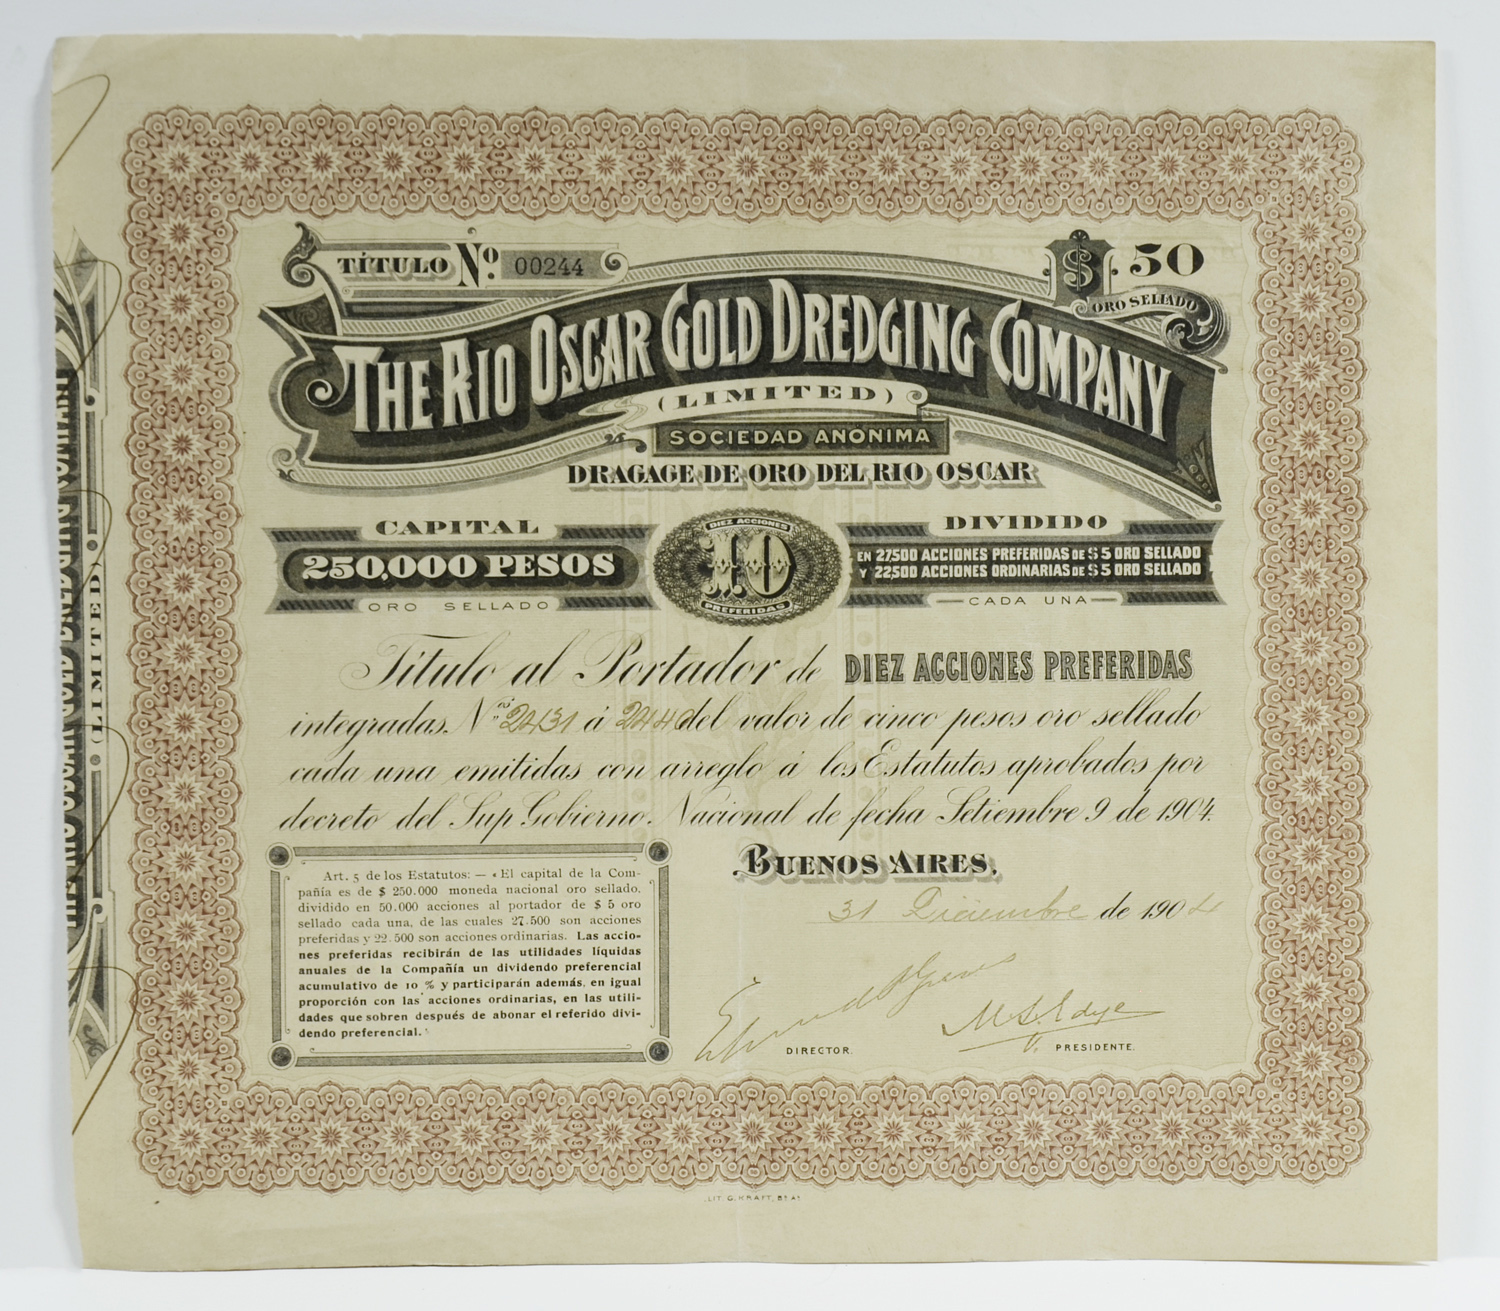 TÍTULO Nº. 00244
$. 50
ORO SELLADO
THE RIO OSCAR GOLD DREDGING COMPANY
(LIMITED)
SOCIEDAD ANÓNIMA
DRAGAGE DE ORO DEL RIO OSCAR
CAPITAL
250,000 PESOS
ORO SELLADO
DIEZ ACCIONES
10
PREFERIDAS
DIVIDIDO
EN 27.500 ACCIONES PREFERIDAS DE $ 5 ORO SELLADO
Y 22,500 ACCIONES ORDINARIAS DE $ 5 ORO SELLADO
CADA UNA
Título al Portador de DIEZ ACCIONES PREFERIDAS
integradas. Nos 2431 á 2440 del valor de cinco pesos oro sellado
cada una emitidas con arreglo á los Estatutos aprobados por
decreto del Sup. Gobierno. Nacional de fecha Setiembre 9 de 1904.
BUENOS AIRES,
31 Diciembre de 1904
Art. 5 de los Estatutos: — «El capital de la Com-
pañía es de $ 250.000 moneda nacional oro sellado,
dividido en 50.000 acciones al portador de $ 5 oro
sellado cada una, de las cuales 27.500 son acciones
preferidas y 22.500 son acciones ordinarias. Las accio-
nes preferidas recibirán de las utilidades líquidas
anuales de la Compañía un dividendo preferencial
acumulativo de 10 % y participarán además, en igual
proporción con las acciones ordinarias, en las utili-
dades que sobren después de abonar el referido divi-
dendo preferencial.
DIRECTOR.
PRESIDENTE.
LIT. G. KRAFT, Bs As
(LIMITED)